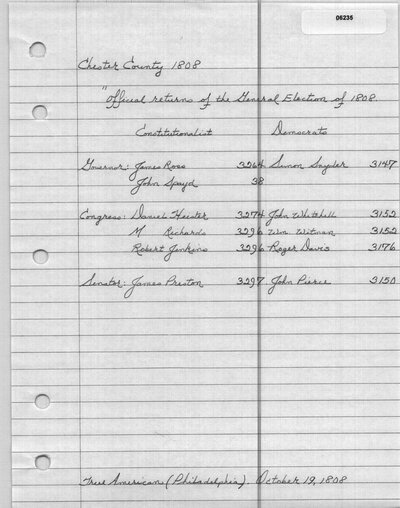 06235
Chester County 1808
"Official returns of the General Election of 1808.
Constitutionalist Democrats
Governor: James Ross 3264 Simon Snyder 3147
John Spayd 38
Congress: Daniel Hiester 3274 John Whitehill 3152
M Richards 3296 Wm Witman 3152
Robert Jenkins 3296 Roger Davis 3176
Senator: James Preston 3297 John Pierce 3150
True American (Philadelphia). October 19, 1808